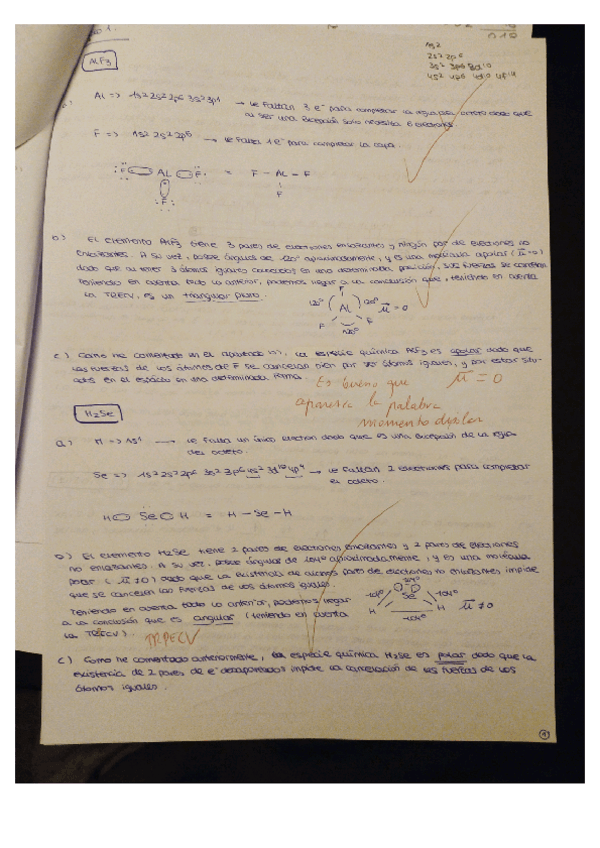 1s2
2s2 2p6
3s2 3p6 3d10
4s2 4p6 4d10 4f14
AlF3
Al => 1s2 2s2 2p6 3s2 3p1 → le faltan 3 e- para completar la regla del octeto dado que
al ser una excepción solo necesita 6 electrones.
F => 1s2 2s2 2p5 → le falta 1 e- para completar la capa.
F Al F = F - Al - F
F F
b) El elemento AlF3 tiene 3 pares de electrones enlazantes y ningún par de electrones no
enlazantes. A su vez, posee ángulos de 120° aproximadamente, y es una molécula apolar (μ=0)
dado que al tener 3 átomos iguales colocados en una determinada posición, sus fuerzas se cancelan.
Teniendo en cuenta todo lo anterior, podemos llegar a la conclusión que, teniendo en cuenta
la TRECV, es un triangular plano.
F
120° Al 120° μ = 0
F F
120°
c) Como he comentado en el apartado b), la especie química AlF3 es apolar dado que
las fuerzas de los átomos de F se cancelan bien por ser átomos iguales, y por estar situ-
ados en el espacio en una determinada forma.
Es bueno que μ = 0
aparezca la palabra
momento dipolar
H2Se
a) H => 1s1 → le falta un único electrón dado que es una excepción de la regla
del octeto.
Se => 1s2 2s2 2p6 3s2 3p6 4s2 3d10 4p4 → le faltan 2 electrones para completar
el octeto.
H Se H = H - Se - H
b) El elemento H2Se tiene 2 pares de electrones enlazantes y 2 pares de electrones
no enlazantes. A su vez, posee ángulos de 104° aproximadamente, y es una molécula
polar (μ≠0) dado que la existencia de algunos pares de electrones no enlazantes impide
que se cancelen las fuerzas de los átomos iguales.
Teniendo en cuenta todo lo anterior, podemos llegar
a la conclusión que es angular (teniendo en cuenta
la TRECV). TRPECV
Se
H H μ ≠ 0
104°
c) Como he comentado anteriormente, la especie química H2Se es polar dado que la
existencia de 2 pares de e- desapareados impide la cancelación de las fuerzas de los
átomos iguales.
1